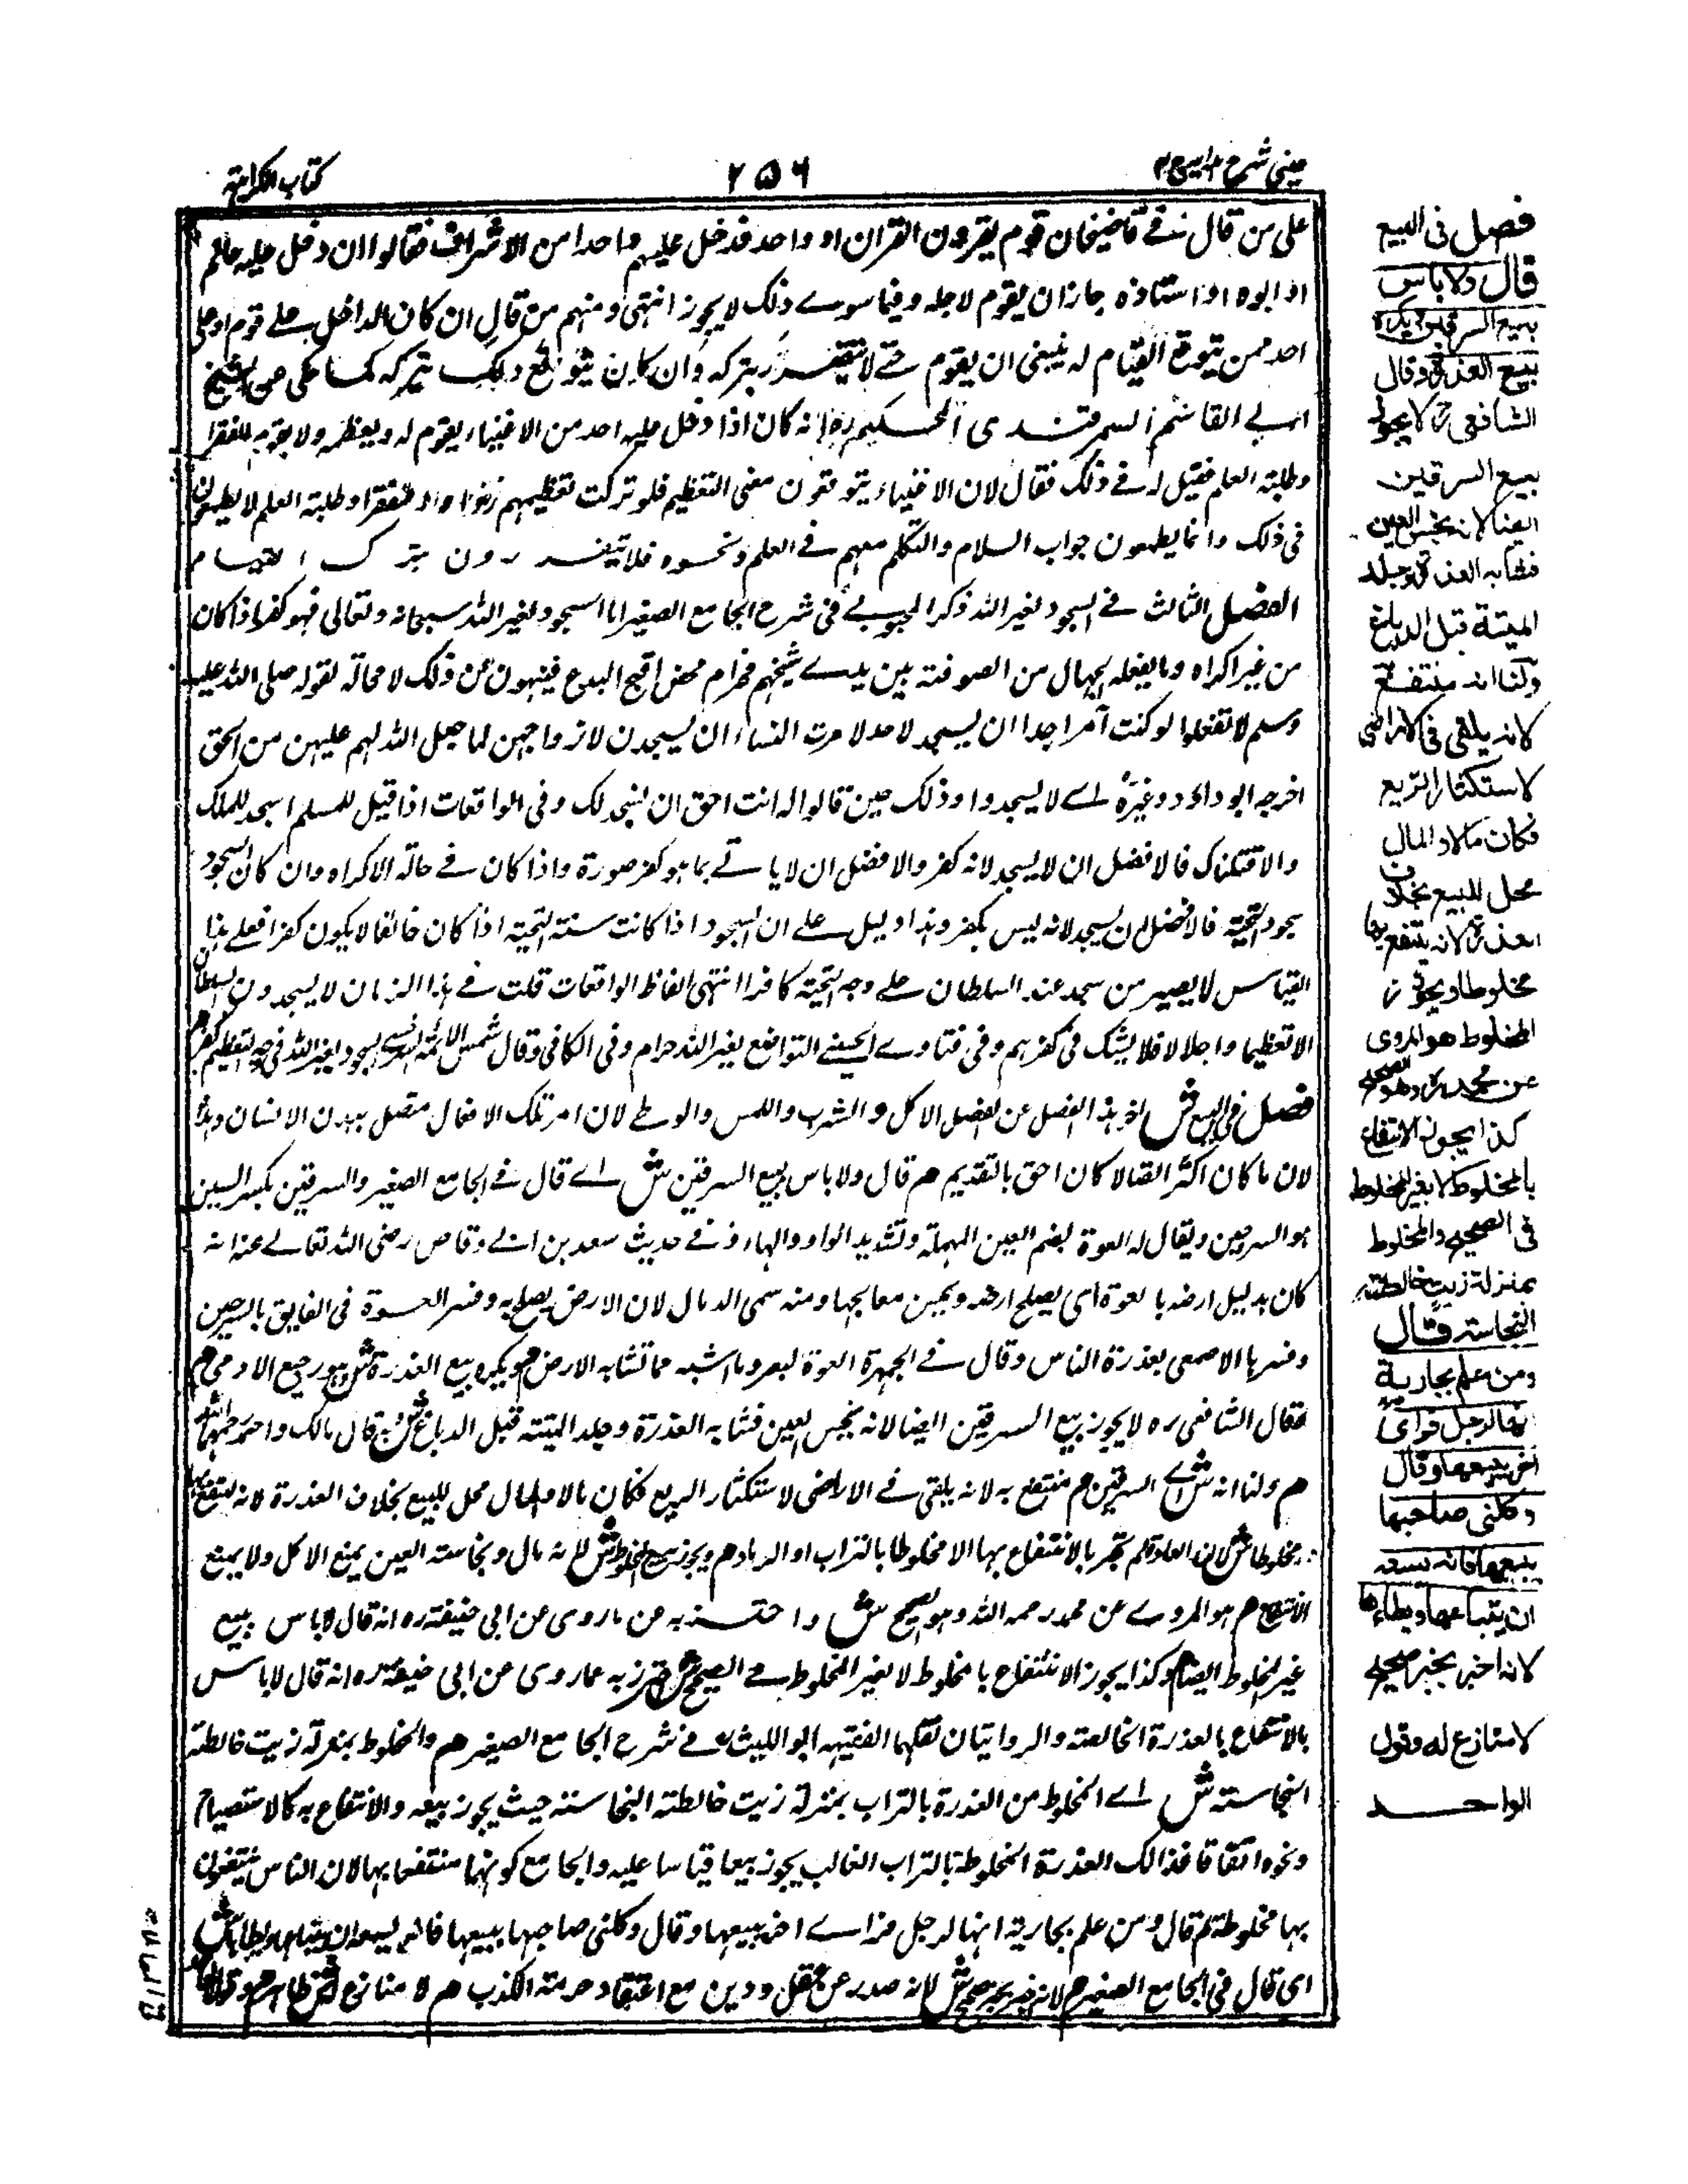 عینی شرح ہدایہ ج ۴
۲۵۶
کتاب الکراہیۃ
علی من قال نہ فی قاضیخان قوم یقرون القران او واحد فدخل علیہم واحدا من الاشراف فقالوا ان دخل علیہ عالم
او ابوہ او استاذہ جاز ان یقوم لاجلہ وفیما سوے ذلک لا یجوز انتہی ومنہم من قال ان کان الداخل علے قوم او علی
احد ممن یتوقع القیام لہ ینبغی ان یقوم حتے لا یتضرر بترکہ وان کان یتوقع ذلک یترکہ کما حکی عن الشیخ
ابے القاسم السمرقندی الحکیم رہ انہ کان اذا دخل علیہ احد من الاغنیاء یقوم لہ ویعظم ولا یقوم للفقرا
وطلبۃ العلم فقیل لہ فے ذلک فقال لان الاغنیاء یتوقعون منی التعظیم فلو ترکت تعظیمہم تضرروا والفقرا وطلبۃ العلم لا یطمعون
فی ذلک وانما یطمعون جواب السلام والتکلم معہم فے العلم ونحوہ فلا یتضررون بترک القیام
الفصل الثالث فے السجود لغیر اللہ ذکر المحبوبے فی شرح الجامع الصغیر اما السجود لغیر اللہ سبحانہ وتعالی فہو کفر اذا کان
من غیر اکراہ وما یفعلہ الجہال من الصوفیۃ بین یدے شیخہم فحرام محض اقبح البدع فینہون عن ذلک لا محالۃ لقولہ صلی اللہ علیہ
وسلم لا تفعلوا لو کنت آمرا احدا ان یسجد لاحد لامرت النساء ان یسجدن لازواجہن لما جعل اللہ لہم علیہن من الحق
اخرجہ ابو داؤد وغیرہ اے لا یسجدوا وذلک حین قالوا لہ انت احق ان نسجد لک وفی الواقعات اذا قیل للمسلم اسجد للملک
والا قتلناک فالافضل ان لا یسجد لانہ کفر والافضل ان لا یاتے بما ہو کفر صورۃ واذا کان فے حالۃ الاکراہ وان کان السجود
سجود التحیۃ فالافضل ان یسجد لانہ لیس بکفر وہذا دلیل علے ان السجود اذا کانت سنۃ التحیۃ اذا کان خائفا لا یکون کفرا فعلے ہذا
القیاس لا یصیر من سجد عند السلطان علے وجہ التحیۃ کافرا انتہی الفاظ الواقعات قلت فے ہذا الزمان لا یسجدون السلطان
الا تعظیما واجلالا فلا یشک فی کفرہم وفی فتاوے التواضع لغیر اللہ حرام وفی الکافی وقال شمس الائمۃ السرخسی السجود لغیر اللہ فی وجہ التعظیم کفر
فصل فی البیع ش اخر ہذا الفصل عن فصل الاکل والشرب واللمس والوطے لان امر تلک الافعال متصل ببدن الانسان وہذا
لان ما کان اکثر اتصالا کان احق بالتقدیم ھم قال ولا باس ببیع السرقین ش اے قال فے الجامع الصغیر والسرقین بکسر السین
ہو السرجین ویقال لہ العوۃ بضم العین المہملۃ وتشدید الواو والہاء وفے حدیث سعد بن ابے وقاص رضی اللہ تعالے عنہ انہ
کان یدمل ارضہ بالعوۃ ای یصلح ارضہ ویحسن معالجہا ومنہ سمی الدمال لان الارض یصلح بہ وفسر العوۃ فی الفایق بالسرجین
وفسرہا الاصمعی بعذرۃ الناس وقال فے الجمہرۃ العوۃ البعر وما اشبہ مما تشابہ الارض ھم ویکرہ بیع العذرۃ ش وہو رجیع الادمی ھم
فقال الشافعی رہ لا یجوز بیع السرقین ایضا لانہ نجس العین فشابہ العذرۃ وجلد المیتۃ قبل الدباغ ش وبہ قال مالک واحمد رحمہما اللہ
ھم ولنا انہ ش اے السرقین ھم منتفع بہ لانہ یلقی فے الاراضی لاستکثار الریع فکان مالا والمال محل للبیع بخلاف العذرۃ لانہ ینتفع بہا
مخلوطا ش لان العادۃ لم تجر بالانتفاع بہا الا مخلوطا بالتراب او الرماد ھم ویجوز بیع المخلوط ش لانہ مال ونجاستہ العین یمنع الاکل ولا یمنع
الانتفاع ھم ہو المروے عن محمد رحمہ اللہ وہو الصحیح ش واحترز بہ عن ما روی عن ابی حنیفۃ رہ انہ قال لا باس ببیع
غیر المخلوط ایضا ھم وکذا یجوز الانتفاع بالمخلوط لا بغیر المخلوط فے الصحیح ش احترز بہ عما روی عن ابی حنیفۃ رہ انہ قال لا باس
بالانتفاع بالعذرۃ الخالصۃ والروایتان نقلہما الفقیہ ابو اللیث فے شرح الجامع الصغیر ھم والمخلوط بمنزلۃ زیت خالطتہ
النجاستہ ش اے المخلوط من العذرۃ بالتراب بمنزلۃ زیت خالطتہ النجاستہ حیث یجوز بیعہ والانتفاع بہ کالاستصباح
ونحوہ اتفاقا فذالک العذرۃ المخلوطۃ بالتراب الغالب یجوز بیعا قیاسا علیہ والجامع کونہما منتفعا بہا لان الناس ینتفعون
بہا مخلوطۃ ھم قال ومن علم بجاریۃ انہا لرجل فراے اخر یبیعہا وقال وکلنی صاحبہا ببیعہا فانہ یسعہ ان یبتاعہا ویطاہا ش
ای قال فی الجامع الصغیر ھم لانہ خبر بخبر صحیح ش لانہ صدر عن عقل ودین مع اعتقاد حرمۃ الکذب ھم لا منازع
فصل فی البیع
قال ولا باس
ببیع السرقین ویکرہ
بیع العذرۃ وقال
الشافعی رح لا یجوز
بیع السرقین
ایضا لانہ نجس العین
فشابہ العذرۃ وجلد
المیتۃ قبل الدباغ
ولنا انہ منتفع
لانہ یلقی فی الاراضی
لاستکثار الریع
فکان مالا والمال
محل للبیع بخلاف
العذرۃ لانہ ینتفع بہا
مخلوطا ویجوز
المخلوط هو المروی
عن محمد رح وهو الصحیح
کذا یجوز الانتفاع
بالمخلوط لا بغیر المخلوط
فی الصحیح والمخلوط
بمنزلۃ زیت خالطتہ
النجاستہ قال
ومن علم بجاریۃ
انہا لرجل فرای
اخر یبیعہا وقال
وکلنی صاحبہا
ببیعہا فانہ یسعہ
ان یبتاعہا ویطاءہا
لانہ اخبر بخبر صحیح
لا منازع لہ وقول
الواحد